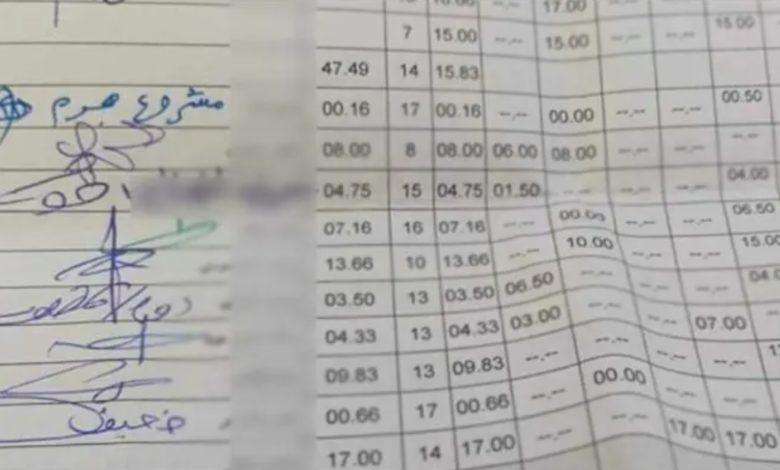 17.00
7 15.00 --.-- 15.00 --.-- --.-- 15.00
47.49 14 15.83
مشروع هرم
00.16 17 00.16 --.-- 00.00 --.-- --.-- 00.50
08.00 8 08.00 06.00 08.00 --.-- --.-- --.--
04.75 15 04.75 01.50 --.-- --.-- --.-- 04.00
07.16 16 07.16 --.-- 00.00 --.-- --.-- 06.50
13.66 10 13.66 --.-- 10.00 --.-- --.-- 15.00
03.50 13 03.50 06.50 --.-- --.-- --.--
04.33 13 04.33 03.00 --.-- --.-- 07.00
09.83 13 09.83 --.-- --.-- --.-- --.--
00.66 17 00.66 --.-- 00.00 --.-- --.--
ضعيف
17.00 14 17.00 --.-- --.-- 17.00 17.00